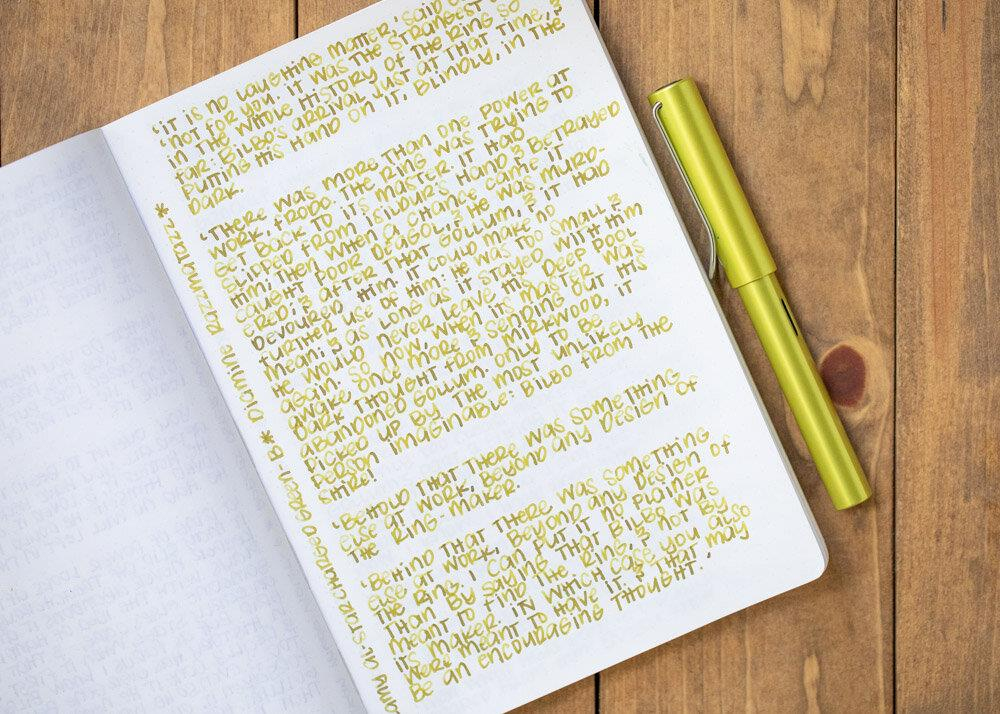 'it is no laughing matter,' said
'not for you. it was the strangest
in the whole history of the ring so
far: Bilbo's arrival just at that time, &
putting his hand on it, blindly, in the
dark.
'There was more than one power at
work, Frodo. The ring was trying to
get back to its master. it had
slipped from isildur's hand & betrayed
him; then when a chance came it
caught poor Deagol, & he was murd-
ered; & after that Gollum, & it had
devoured him. it could make no
further use of him: he was too small &
mean; & as long as it stayed with him
he would never leave his deep pool
again. so now, when its master was
awake once more & sending out his
dark thought from mirkwood, it
abandoned Gollum. only to be
picked up by the most unlikely
person imaginable: Bilbo from the
shire!
'Behold that there was something
else at work, beyond any design of
the ring-maker.
'Behind that there was something
else at work, beyond any design of
the ring. i can put it no plainer
than by saying that Bilbo was
meant to find the ring, & not by
its maker. in which case you also
were meant to have it. & that may
be an encouraging thought.'
al-star charged green-B * Diamine Razzmatazz *